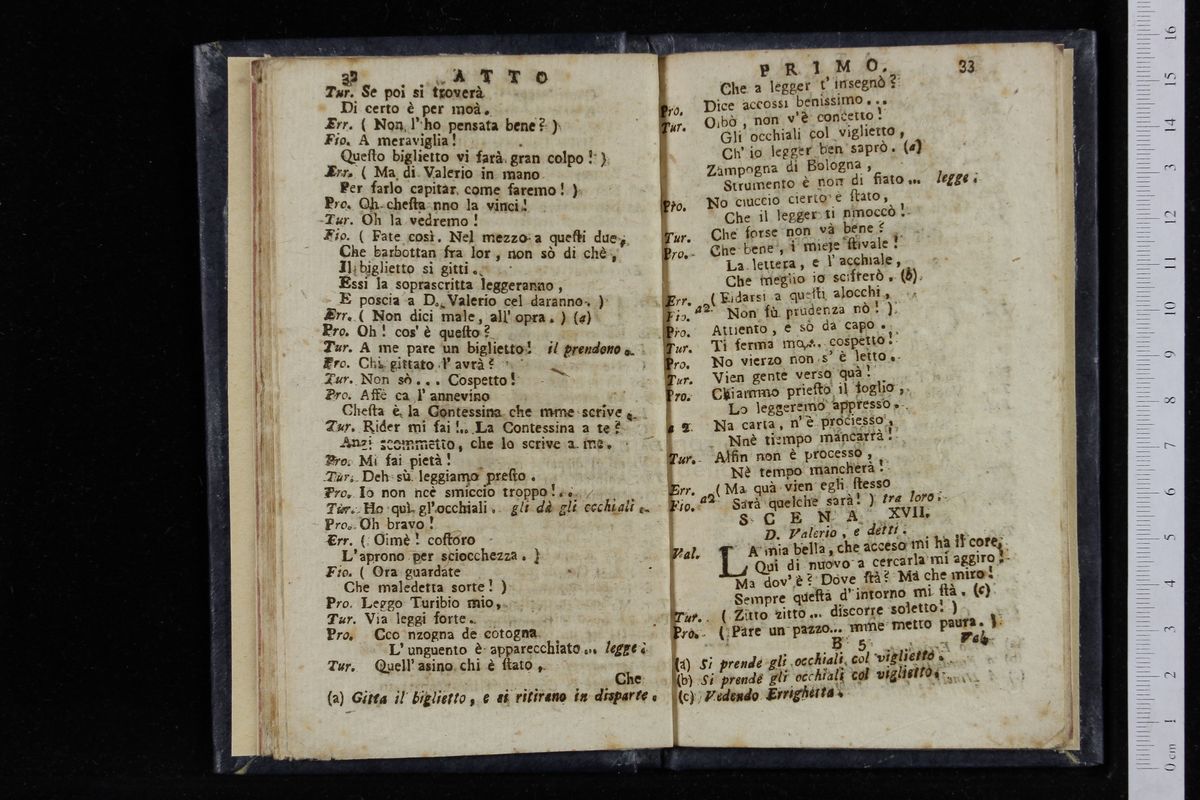 32 ATTO
Tur. Se poi si troverà
Di certo è per moà.
Err. ( Non l'ho pensata bene? )
Fio. A meraviglia!
Queſto biglietto vi farà gran colpo! )
Err. ( Ma di Valerio in mano
Per farlo capitar come faremo! )
Pro. Oh cheſta nno la vinci!
Tur. Oh la vedremo!
Fio. ( Fate così. Nel mezzo a queſti due,
Che barbottan fra lor, non sò di chè,
Il biglietto si gitti.
Essi la soprascritta leggeranno,
E poscia a D. Valerio cel daranno. )
Err. ( Non dici male, all'opra. ) (a)
Pro. Oh! cos'è queſto?
Tur. A me pare un biglietto! il prendono.
Pro. Chi gittato l'avrà?
Tur. Non sò... Cospetto!
Pro. Affè ca l'annevino
Cheſta è la Contessina che mme scrive.
Tur. Rider mi fai!.. La Contessina a te?
Anzi scommetto, che lo scrive a me.
Pro. Mi fai pietà!
Tur. Deh sù leggiamo preſto.
Pro. Io non ncè smiccio troppo!..
Tur. Ho quì gl'occhiali. gli dà gli occhiali.
Pro. Oh bravo!
Err. ( Oimè! coſtoro
L'aprono per sciocchezza. )
Fio. ( Ora guardate
Che maledetta sorte! )
Pro. Leggo Turibio mio,
Tur. Via leggi forte.
Pro. Cco nzogna de cotogna
L'unguento è apparecchiato... legge.
Tur. Quell'asino chi è ſtato,
Che
(a) Gitta il biglietto, e si ritirano in disparte.
PRIMO. 33
Che a legger t'insegnò?
Pro. Dice accossì benissimo...
Tur. Oibò, non v'è concetto!
Gli occhiali col viglietto,
Ch'io legger ben saprò. (a)
Zampogna di Bologna,
Strumento è non di fiato... legge.
Pro. No ciuccio cierto è ſtato,
Che il legger ti mmoccò!
Tur. Che forse non và bene?
Pro. Che bene, i mieje ſtivale!
La lettera, e l'acchiale,
Che meglio io scifrerò. (b)
Err. ( Fidarsi a queſti alocchi,
Fio. a2 Non fù prudenza nò! )
Pro. Attiento, e sò da capo.
Tur. Ti ferma mo... cospetto!
Pro. No vierzo non s'è letto.
Tur. Vien gente verso quà!
Pro. Chiammo prieſto il foglio,
Lo leggeremo appresso.
a 2. Na carta, n'è prociesso,
Nnè tiempo mancarrà!
Tur. Alfin non è processo,
Nè tempo mancherà!
Err. ( Ma quà vien egli ſtesso
Fio. a2 Sarà quelche sarà! ) tra loro.
SCENA XVII.
D. Valerio, e detti.
Val. LA mia bella, che acceso mi ha il core,
Qui di nuovo a cercarla mi aggiro!
Ma dov'è? Dove ſtà? Ma che miro!
Sempre queſta d'intorno mi ſtà. (c)
Tur. ( Zitto zitto... discorre soletto! )
Pro. ( Pare un pazzo... mme metto paura. )
B 5 Val.
(a) Si prende gli occhiali col viglietto.
(b) Si prende gli occhiali col viglietto.
(c) Vedendo Errighetta.
16
15
14
13
12
11
10
9
8
7
6
5
4
3
2
1
0 cm